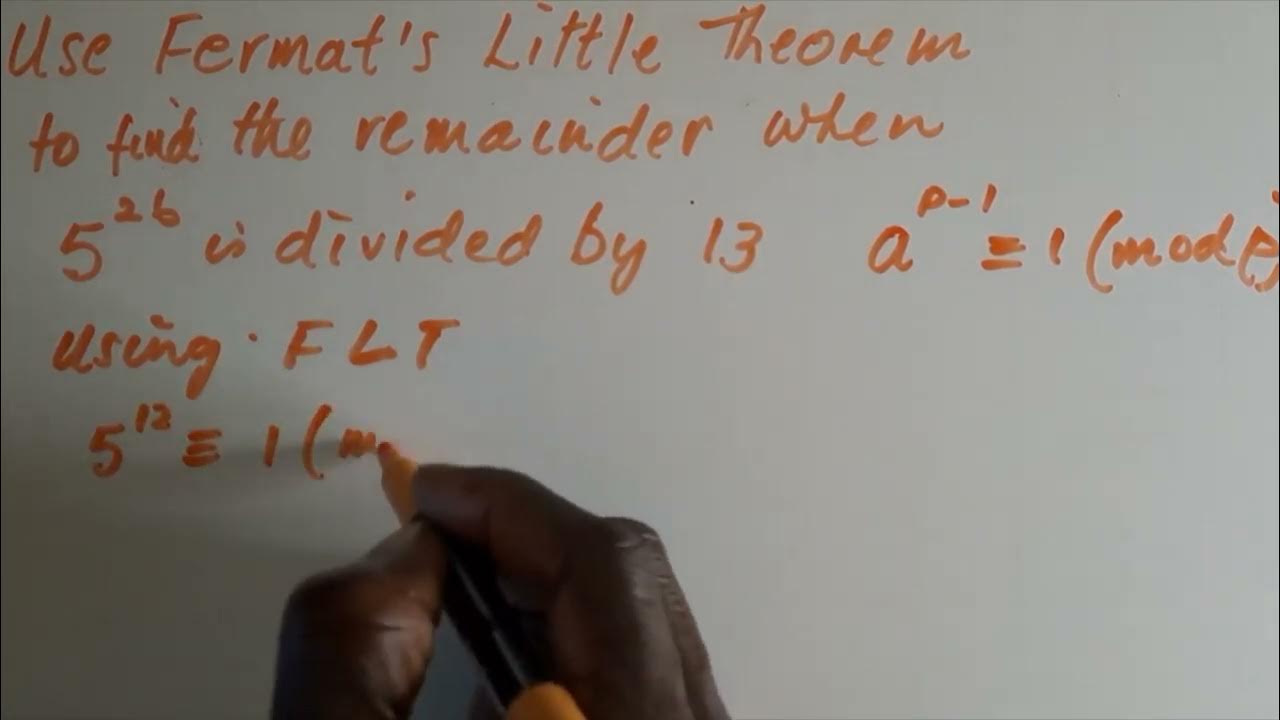 Use Fermat's Little Theorem
to find the remainder when
5²⁶ is divided by 13 aᵖ⁻¹ ≡ 1 (mod p)
Using FLT
5¹² ≡ 1 (m